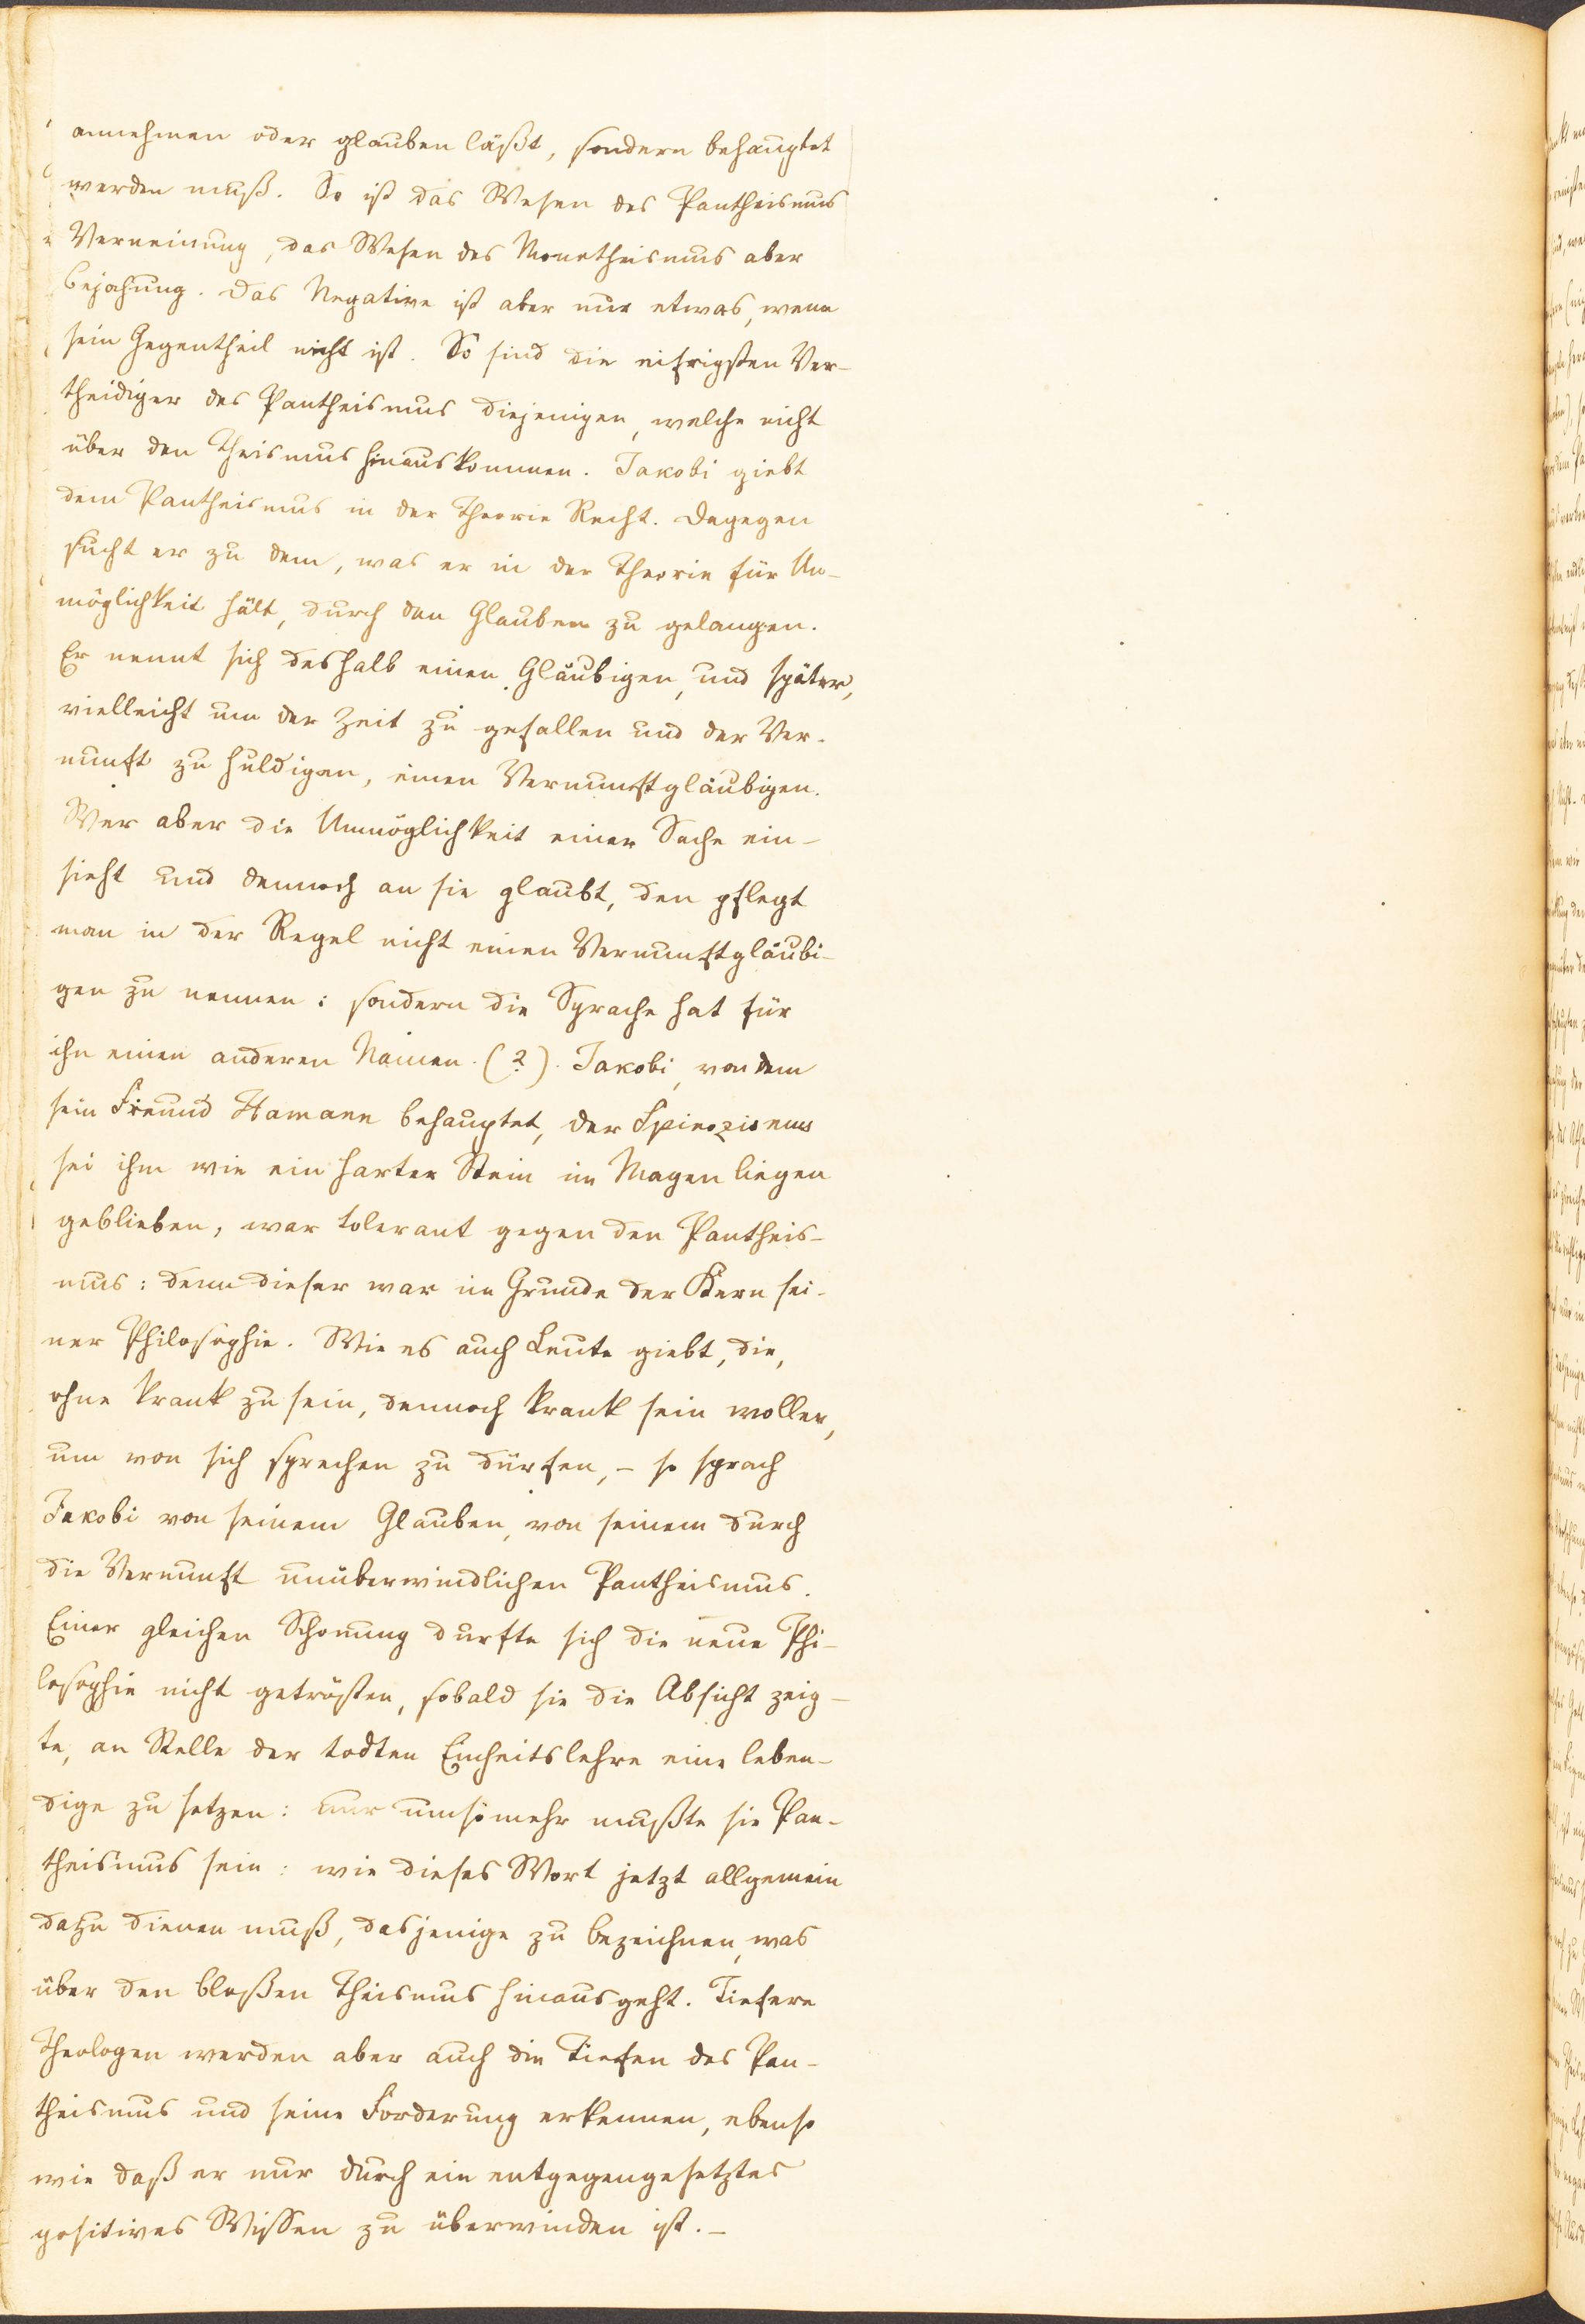 annehmen oder glauben läßt, sondern behauptet
werden muß. So ist das Wesen des Pantheismus
Verneinung, das Wesen des Monotheismus aber
Bejahung. Das Negative ist aber nur etwas, wenn
sein Gegentheil nicht ist. So sind die eifrigsten Ver-
theidiger des Pantheismus diejenigen, welche nicht
über den Theismus hinauskommen. Jakobi giebt
dem Pantheismus in der Theorie Recht. Dagegen
sucht er zu dem, was er in der Theorie für Un-
möglichkeit hält, durch den Glauben zu gelangen.
Er nennt sich deshalb einen Gläubigen, und später,
vielleicht um der Zeit zu gefallen und der Ver-
nunft zu huldigen, einen Vernunftgläubigen.
Wer aber die Unmöglichkeit einer Sache ein-
sieht und dennoch an sie glaubt, den pflegt
man in der Regel nicht einen Vernunftgläubi-
gen zu nennen: sondern die Sprache hat für
ihn einen anderen Namen. (?). Jakobi, von dem
sein Freund Hamann behauptet, der Spinozismus
sei ihm wie ein harter Stein im Magen liegen
geblieben, war tolerant gegen den Pantheis-
mus: denn dieser war im Grunde der Kern sei-
ner Philosophie. Wie es auch Leute giebt, die,
ohne krank zu sein, dennoch krank sein wollen,
um von sich sprechen zu dürfen, – so sprach
Jakobi von seinem Glauben, von seinem durch
die Vernunft unüberwindlichen Pantheismus.
Einer gleichen Schonung durfte sich die neue Phi-
losophie nicht getrösten, sobald sie die Absicht zeig-
te, an Stelle der todten Einheitslehre eine leben-
dige zu setzen: nur umsomehr mußte sie Pan-
theismus sein: wie dieses Wort jetzt allgemein
dazu dienen muß, dasjenige zu bezeichnen, was
über den bloßen Theismus hinausgeht. Tiefere
Theologen werden aber auch die Tiefen des Pan-
theismus und seine Forderung erkennen, ebenso
wie daß er nur durch ein entgegengesetztes
positives Wissen zu überwinden ist. –